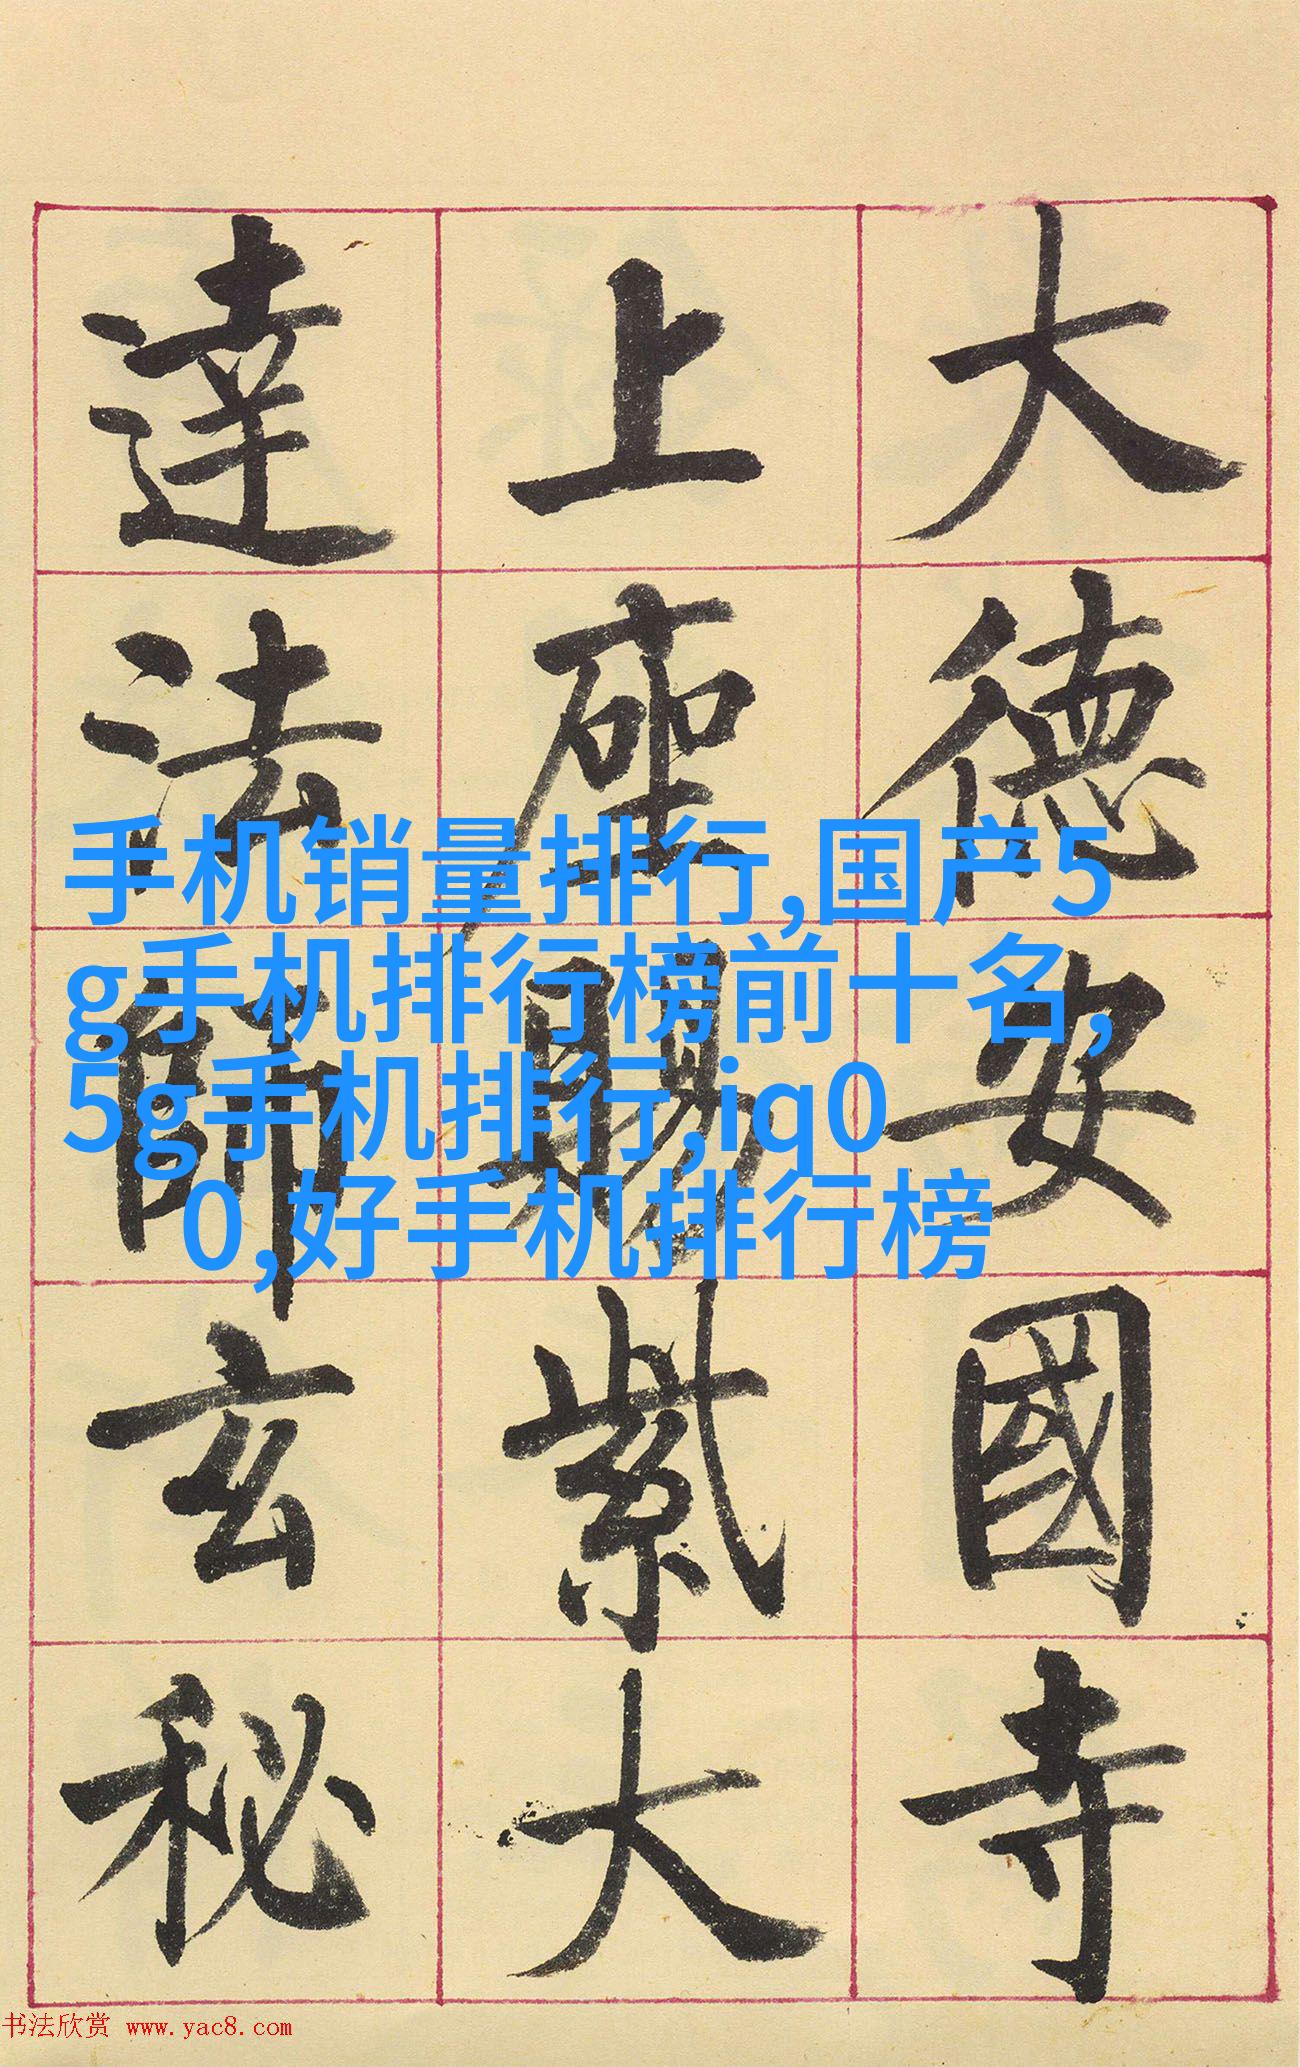 大德安國寺
上座賜紫大
達法師玄秘
手机销量排行,国产5
g手机排行榜前十名,
5g手机排行,iq0
0,好手机排行榜
书法欣赏 www.yac8.com